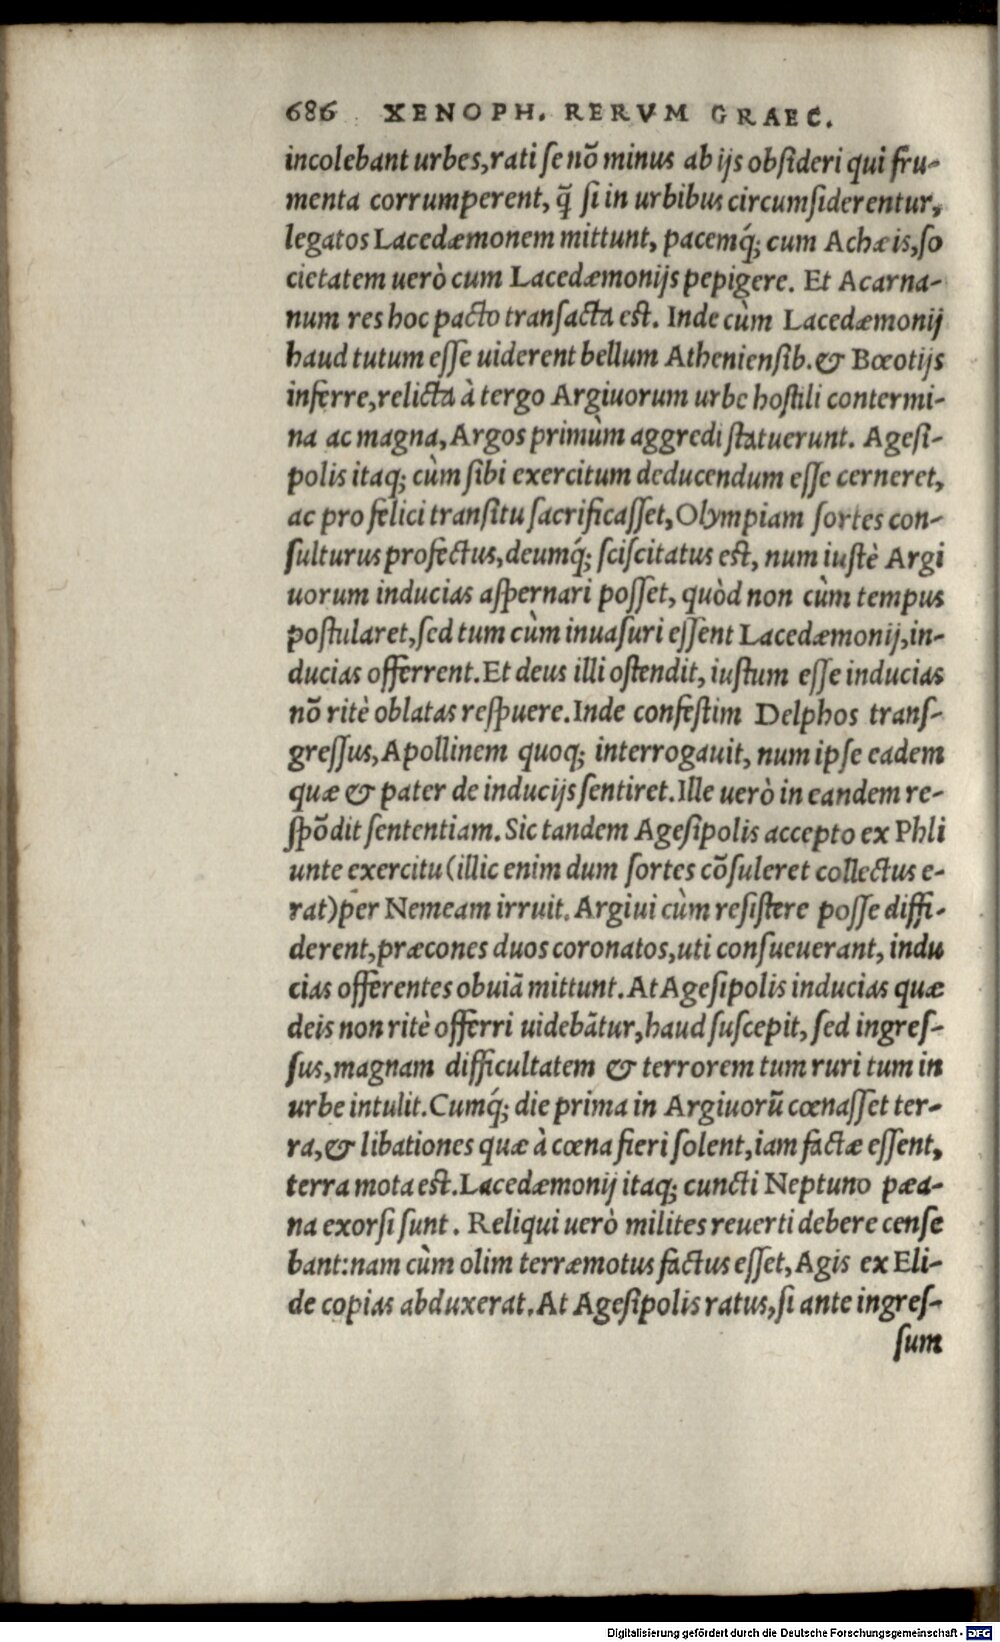 686 XENOPH. RERVM GRAEC.
incolebant urbes, rati se nõ minus ab ijs obsideri qui fru-
menta corrumperent, q̃ si in urbibus circumsiderentur,
legatos Lacedæmonem mittunt, pacemq́; cum Achæis, so
cietatem uerò cum Lacedæmonijs pepigere. Et Acarna-
num res hoc pacto transacta est. Inde cùm Lacedæmonij
haud tutum esse uiderent bellum Atheniensib. & Bœotijs
inferre, relicta à tergo Argiuorum urbe hostili contermi-
na ac magna, Argos primùm aggredi statuerunt. Agesi-
polis itaq; cùm sibi exercitum deducendum esse cerneret,
ac pro felici transitu sacrificasset, Olympiam sortes con-
sulturus profectus, deumq́; sciscitatus est, num iustè Argi
uorum inducias aspernari posset, quòd non cùm tempus
postularet, sed tum cùm inuasuri essent Lacedæmonij, in-
ducias offerrent. Et deus illi ostendit, iustum esse inducias
nõ ritè oblatas respuere. Inde confestim Delphos trans-
gressus, Apollinem quoq; interrogauit, num ipse eadem
quæ & pater de inducijs sentiret. Ille uerò in eandem re-
spõdit sententiam. Sic tandem Agesipolis accepto ex Phli
unte exercitu (illic enim dum sortes cõsuleret collectus e-
rat) per Nemeam irruit. Argiui cùm resistere posse diffi-
derent, præcones duos coronatos, uti consueuerant, indu
cias offerentes obuiã mittunt. At Agesipolis inducias quæ
deis non ritè offerri uidebãtur, haud suscepit, sed ingres-
sus, magnam difficultatem & terrorem tum ruri tum in
urbe intulit. Cumq́; die prima in Argiuorũ cœnasset ter-
ra, & libationes quæ à cœna fieri solent, iam factæ essent,
terra mota est. Lacedæmonij itaq; cuncti Neptuno pæa-
na exorsi sunt. Reliqui uerò milites reuerti debere cense
bant: nam cùm olim terræmotus factus esset, Agis ex Eli-
de copias abduxerat. At Agesipolis ratus, si ante ingres-
sum
Digitalisierung gefördert durch die Deutsche Forschungsgemeinschaft - DFG